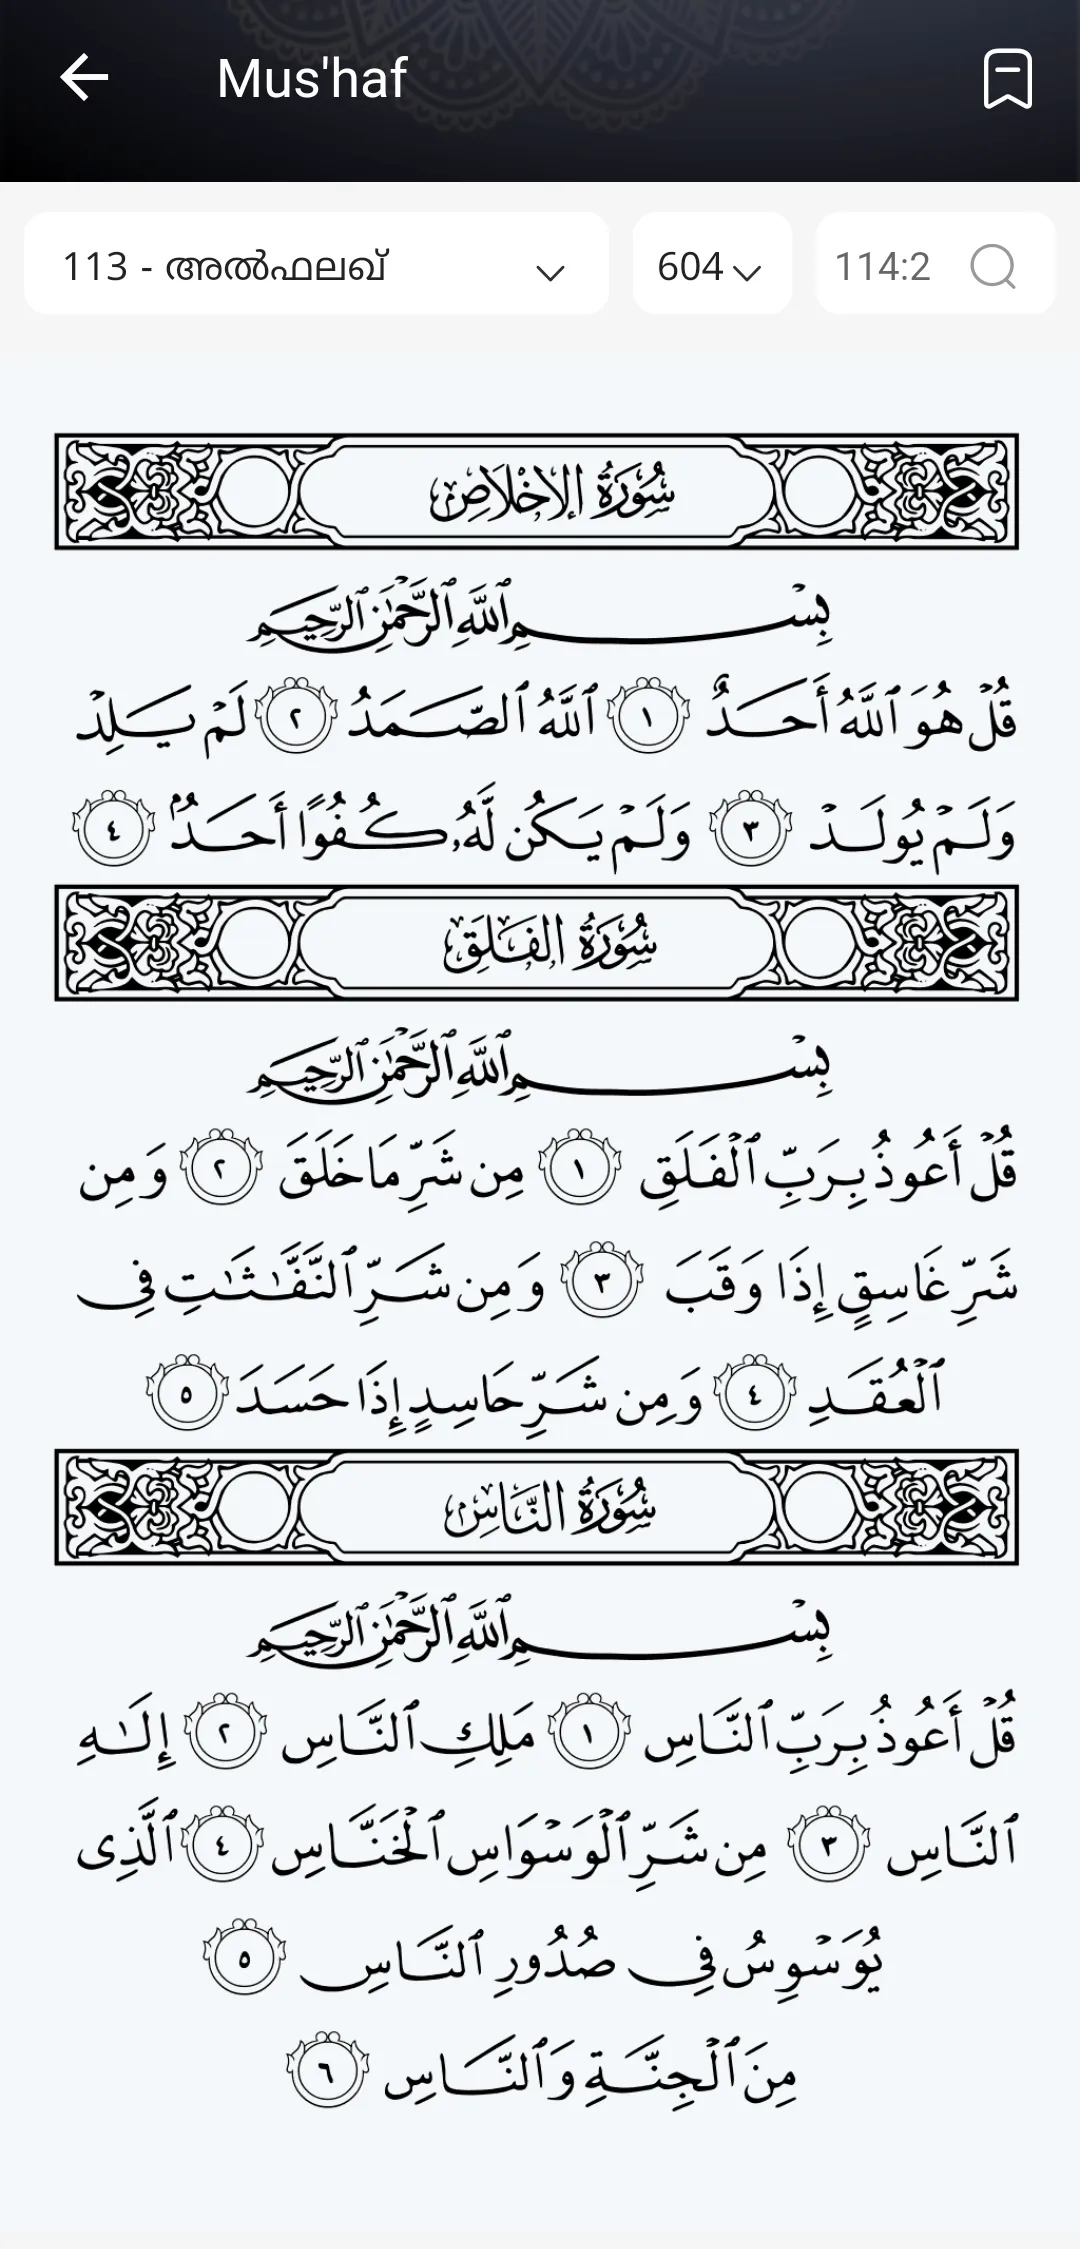 Mus'haf
113 - അൽഫലഖ്
604
114:2
سُورَةُ الإِخْلَاصِ
بِسْمِ ٱللَّهِ ٱلرَّحْمَٰنِ ٱلرَّحِيمِ
قُلْ هُوَ ٱللَّهُ أَحَدٌ ١ ٱللَّهُ ٱلصَّمَدُ ٢ لَمْ يَلِدْ
وَلَمْ يُولَدْ ٣ وَلَمْ يَكُن لَّهُۥ كُفُوًا أَحَدٌۢ ٤
سُورَةُ الفَلَقِ
بِسْمِ ٱللَّهِ ٱلرَّحْمَٰنِ ٱلرَّحِيمِ
قُلْ أَعُوذُ بِرَبِّ ٱلْفَلَقِ ١ مِن شَرِّ مَا خَلَقَ ٢ وَمِن
شَرِّ غَاسِقٍ إِذَا وَقَبَ ٣ وَمِن شَرِّ ٱلنَّفَّٰثَٰتِ فِى
ٱلْعُقَدِ ٤ وَمِن شَرِّ حَاسِدٍ إِذَا حَسَدَ ٥
سُورَةُ النَّاسِ
بِسْمِ ٱللَّهِ ٱلرَّحْمَٰنِ ٱلرَّحِيمِ
قُلْ أَعُوذُ بِرَبِّ ٱلنَّاسِ ١ مَلِكِ ٱلنَّاسِ ٢ إِلَٰهِ
ٱلنَّاسِ ٣ مِن شَرِّ ٱلْوَسْوَاسِ ٱلْخَنَّاسِ ٤ ٱلَّذِى
يُوَسْوِسُ فِى صُدُورِ ٱلنَّاسِ ٥
مِنَ ٱلْجِنَّةِ وَٱلنَّاسِ ٦